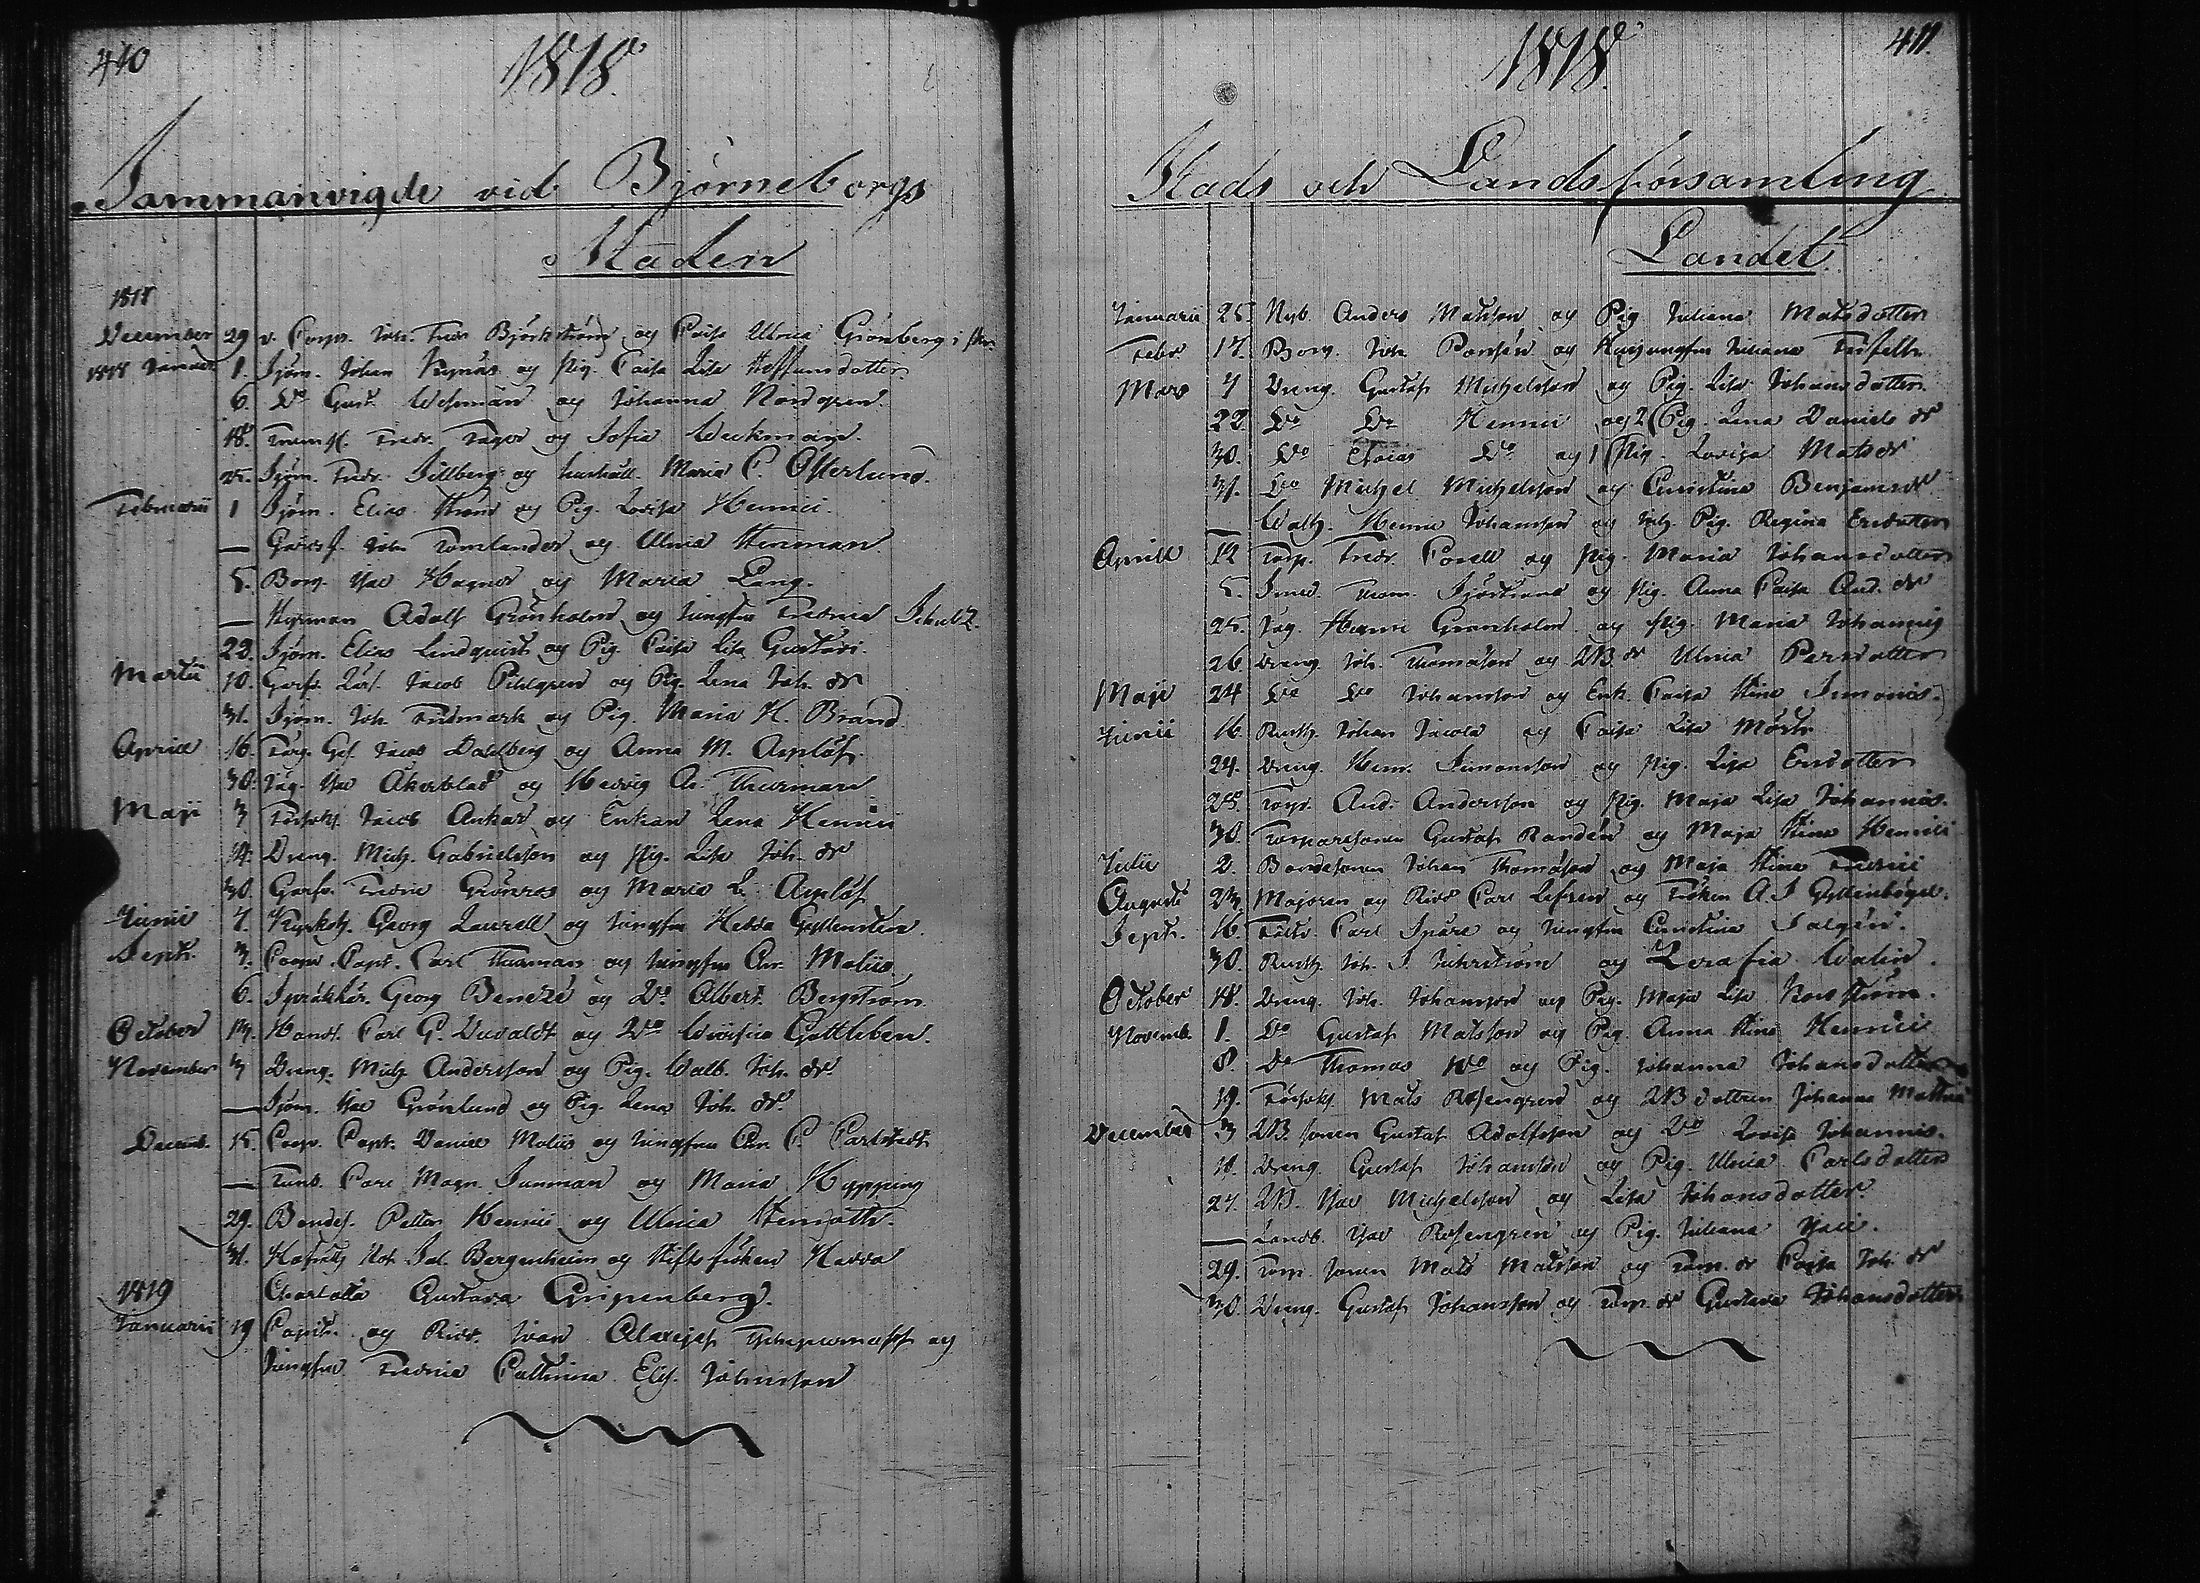 410
1818
Sammanvigde vid Björneborgs
Staden
1817
December 29 v. Corpr. Joh. Fredr. Björkström og Caisa Ulrica Grönberg
1818 Januar 1. Sjöm. Johan Rynäs og Pig. Caisa Lisa Steffansdotter
6. Do Gust. Wesman og Johanna Nordgren.
18. Fredr. Fager og Sofia Weckman.
25. Sjöm. Fredr. Sillberg og hushåll. Maria C. Österlund.
Februarii 1 Sjöm. Elias Strand og Pig. Lovisa Henrici.
— Joh. Tomlander og Ulrica Stenman
5. Borg. Isac Hagner og Maria Lang.
— Styrman Adolf Grönholm og Jungfru Fredrica Schultz.
22. Sjöm. Elias Lindquist og Pig. Caisa Lisa Gustavi.
Martii 10. Garfv. Jacob Pihlgren og Pig. Lena Joh. dr
31. Sjöm. Joh. Fridmark og Pig. Maria H. Brand.
Aprill 16. Färg. Ges. Jacob Dahlberg og Anna M. Asplöf.
30. Isac Åkerblad og Hedvig Thurman
Maji 3 Jacob Ankar og Enkan Lena Henrici
14. Dreng. Mich. Gabrielsson og Pig. Lisa Joh. dr
30. Garfv. Fredric Grönroos og Maria L. Asplöf
Junii 7. Georg Laurell og Jungfru Hedda Gyllenstein.
Septr. 3. Coopv. Capt. Carl Thurman og Jungfru Chr. Molüs
6. Georg Benezé og Do Albert. Bergström.
October 13. Handl. Carl G. Duvaldt og Do Gottleben.
November 3 Dreng. Mich. Andersson og Pig. Walb. Joh. dr.
— Sjöm. Isac Grönlund og Pig. Lena Joh. dr.
Decemb. 15. Coopv. Capt. Daniel Molüs og Jungfru Chr. C. Carlstedt
— Carl Magn. Sunman og Maria Hypping
29. Bondes. Petter Henrici og Ulrica
31. Joh. Sal. Bergenheim og Stiftsfröken Hedda
Charlotta Gustava Gripenberg.
1819
Januarii 19 Capit. og Ridd. Ivan Alexejef og
Jungfru Fredrica Cathrina Elis. Johnsson
1818.
411
Stads och Landsförsamling
Landet
Januarii 25. Nyb. Anders Matsson og Pig Juliana Matsdotter
Febr 17. Borg. Joh. og Juliana
Mars 7 Dreng. Gustaf Michelsson og Pig. Lisa Johansdotter
22. Do Do Henrici og 2 Pig. Lena Daniels dr
30. Do Elias Do og 1 Pig. Lovisa Mats dr
31. Do Michel Michelsson og Christina Benjams dr
— Henric Johansson og Pig. Regina Ersdotter
Aprill 12 Torp. Fredr. Forell og Pig. Maria Johansdotter
5. Smed. Thom. Sjöstrand og Pig. Anna Caisa And. dr
25. Henric Granholm og Pig. Maria Johannis
26. Dreng. Joh. Thomasson og Ulrica Persdotter
Maji 24 Do Do Johansson og Enk. Caisa Stina Simonis.
Junii 16. Rusth. Johan Jacola og Caisa Lisa
24. Dreng. Henr. Simonsson og Pig. Lisa Ersdotter
28. Torp. And. Andersson og Pig. Maja Lisa Johannis.
30. Torparesonen Gustaf Randén og Maja Stina Henrici
Julii 2. Bondesonen Johan Thomasson og Maja Stina Fredrici
Augusti 23. Majoren og Ridd. Carl Lefrén og Fröken A. S. Gyllenbögel.
Septr. 16. Fältv. Carl Spåre og Jungfru Christina Salgén.
30. Rusth. Joh. S. og Serafia Walin.
October 18. Dreng. Joh. Johansson og Pig. Maja Lisa Norström.
Novemb. 1. Do Gustaf Matsson og Pig. Anna Stina Henrici
8. Do Thomas Do og Pig. Johanna Johansdotter
19. Mats Rosengren og dottren Johanna
December 3 sonen Gustaf Adolfsson og Do Lovisa Johannis.
18. Dreng. Gustaf Johansson og Pig. Ulrica Carlsdotter
27. Isac Michelsson og Lisa Johansdotter
— Landb. Isac Rosengren og Pig. Juliana Isaci.
29. Torp. sonen Mats Matsson og Torp. dr Caisa Joh. dr
30. Dreng. Gustaf Johansson og Torp. dr Gustava Johansdotter